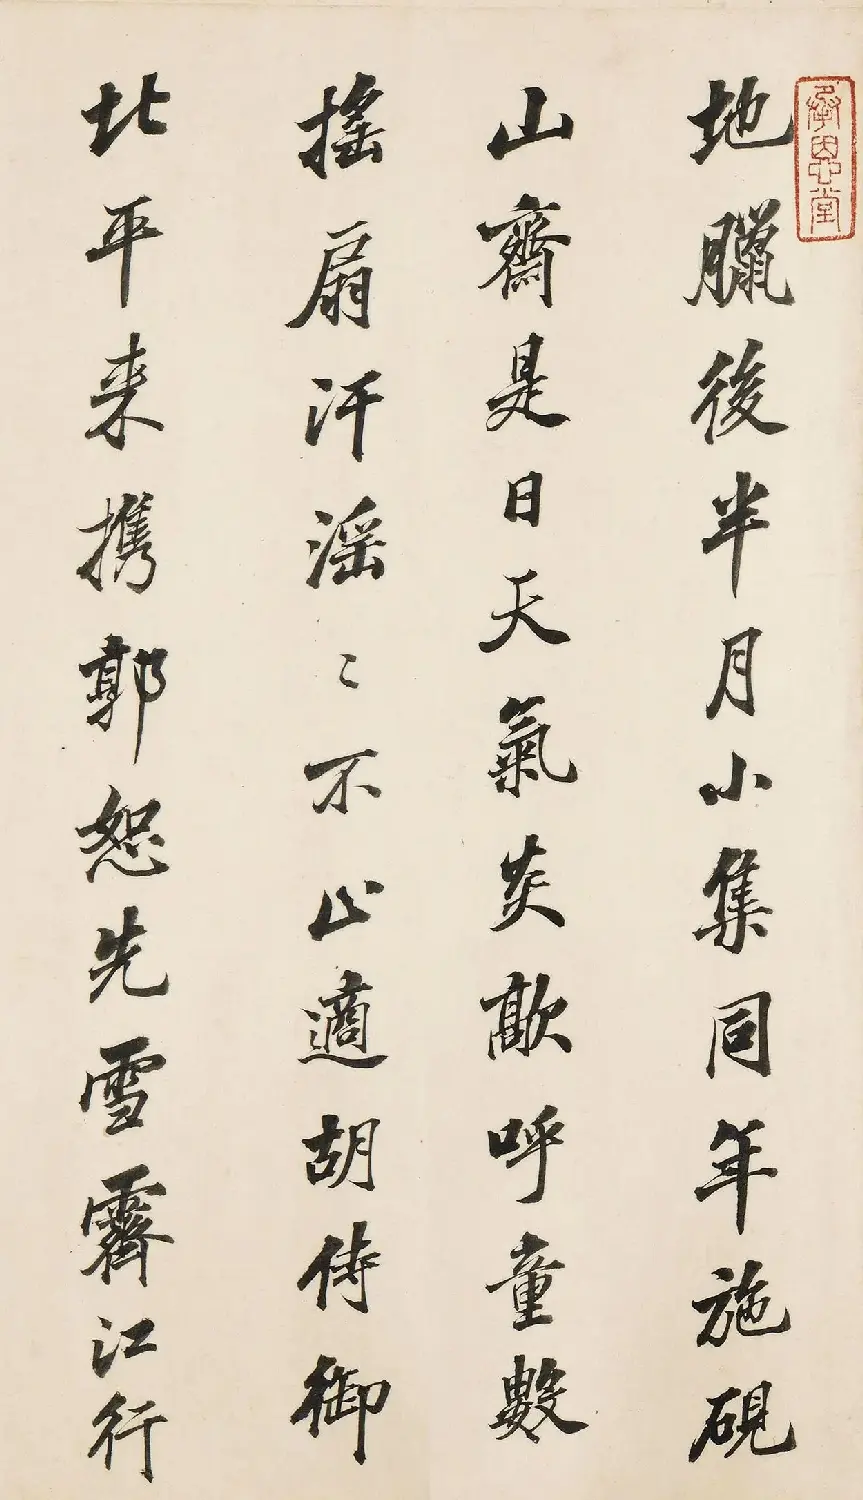 承恩堂
地臘後半月小集同年施硯
山齋是日天氣炎歊呼童數
搖扇汗滛〻不止適胡侍御
北平来携郭恕先雪霽江行